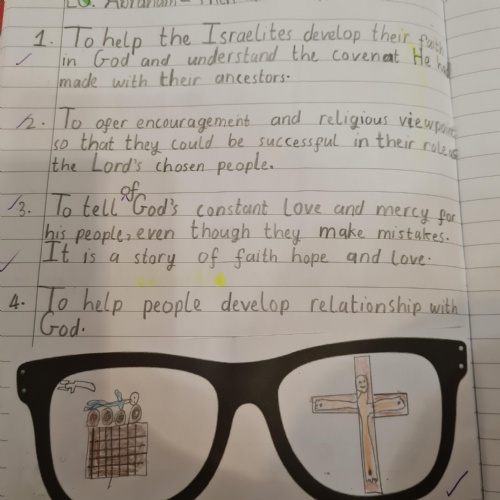 LO. Abraham - Then
1. To help the Israelites develop their faith
in God and understand the covenat He had
made with their ancestors.
2. To ofer encouragement and religious viewpoint
so that they could be successful in their role as
the Lord's chosen people.
of
3. To tell God's constant love and mercy for
his people, even though they make mistakes.
It is a story of faith hope and love.
4. To help people develop relationship with
God.